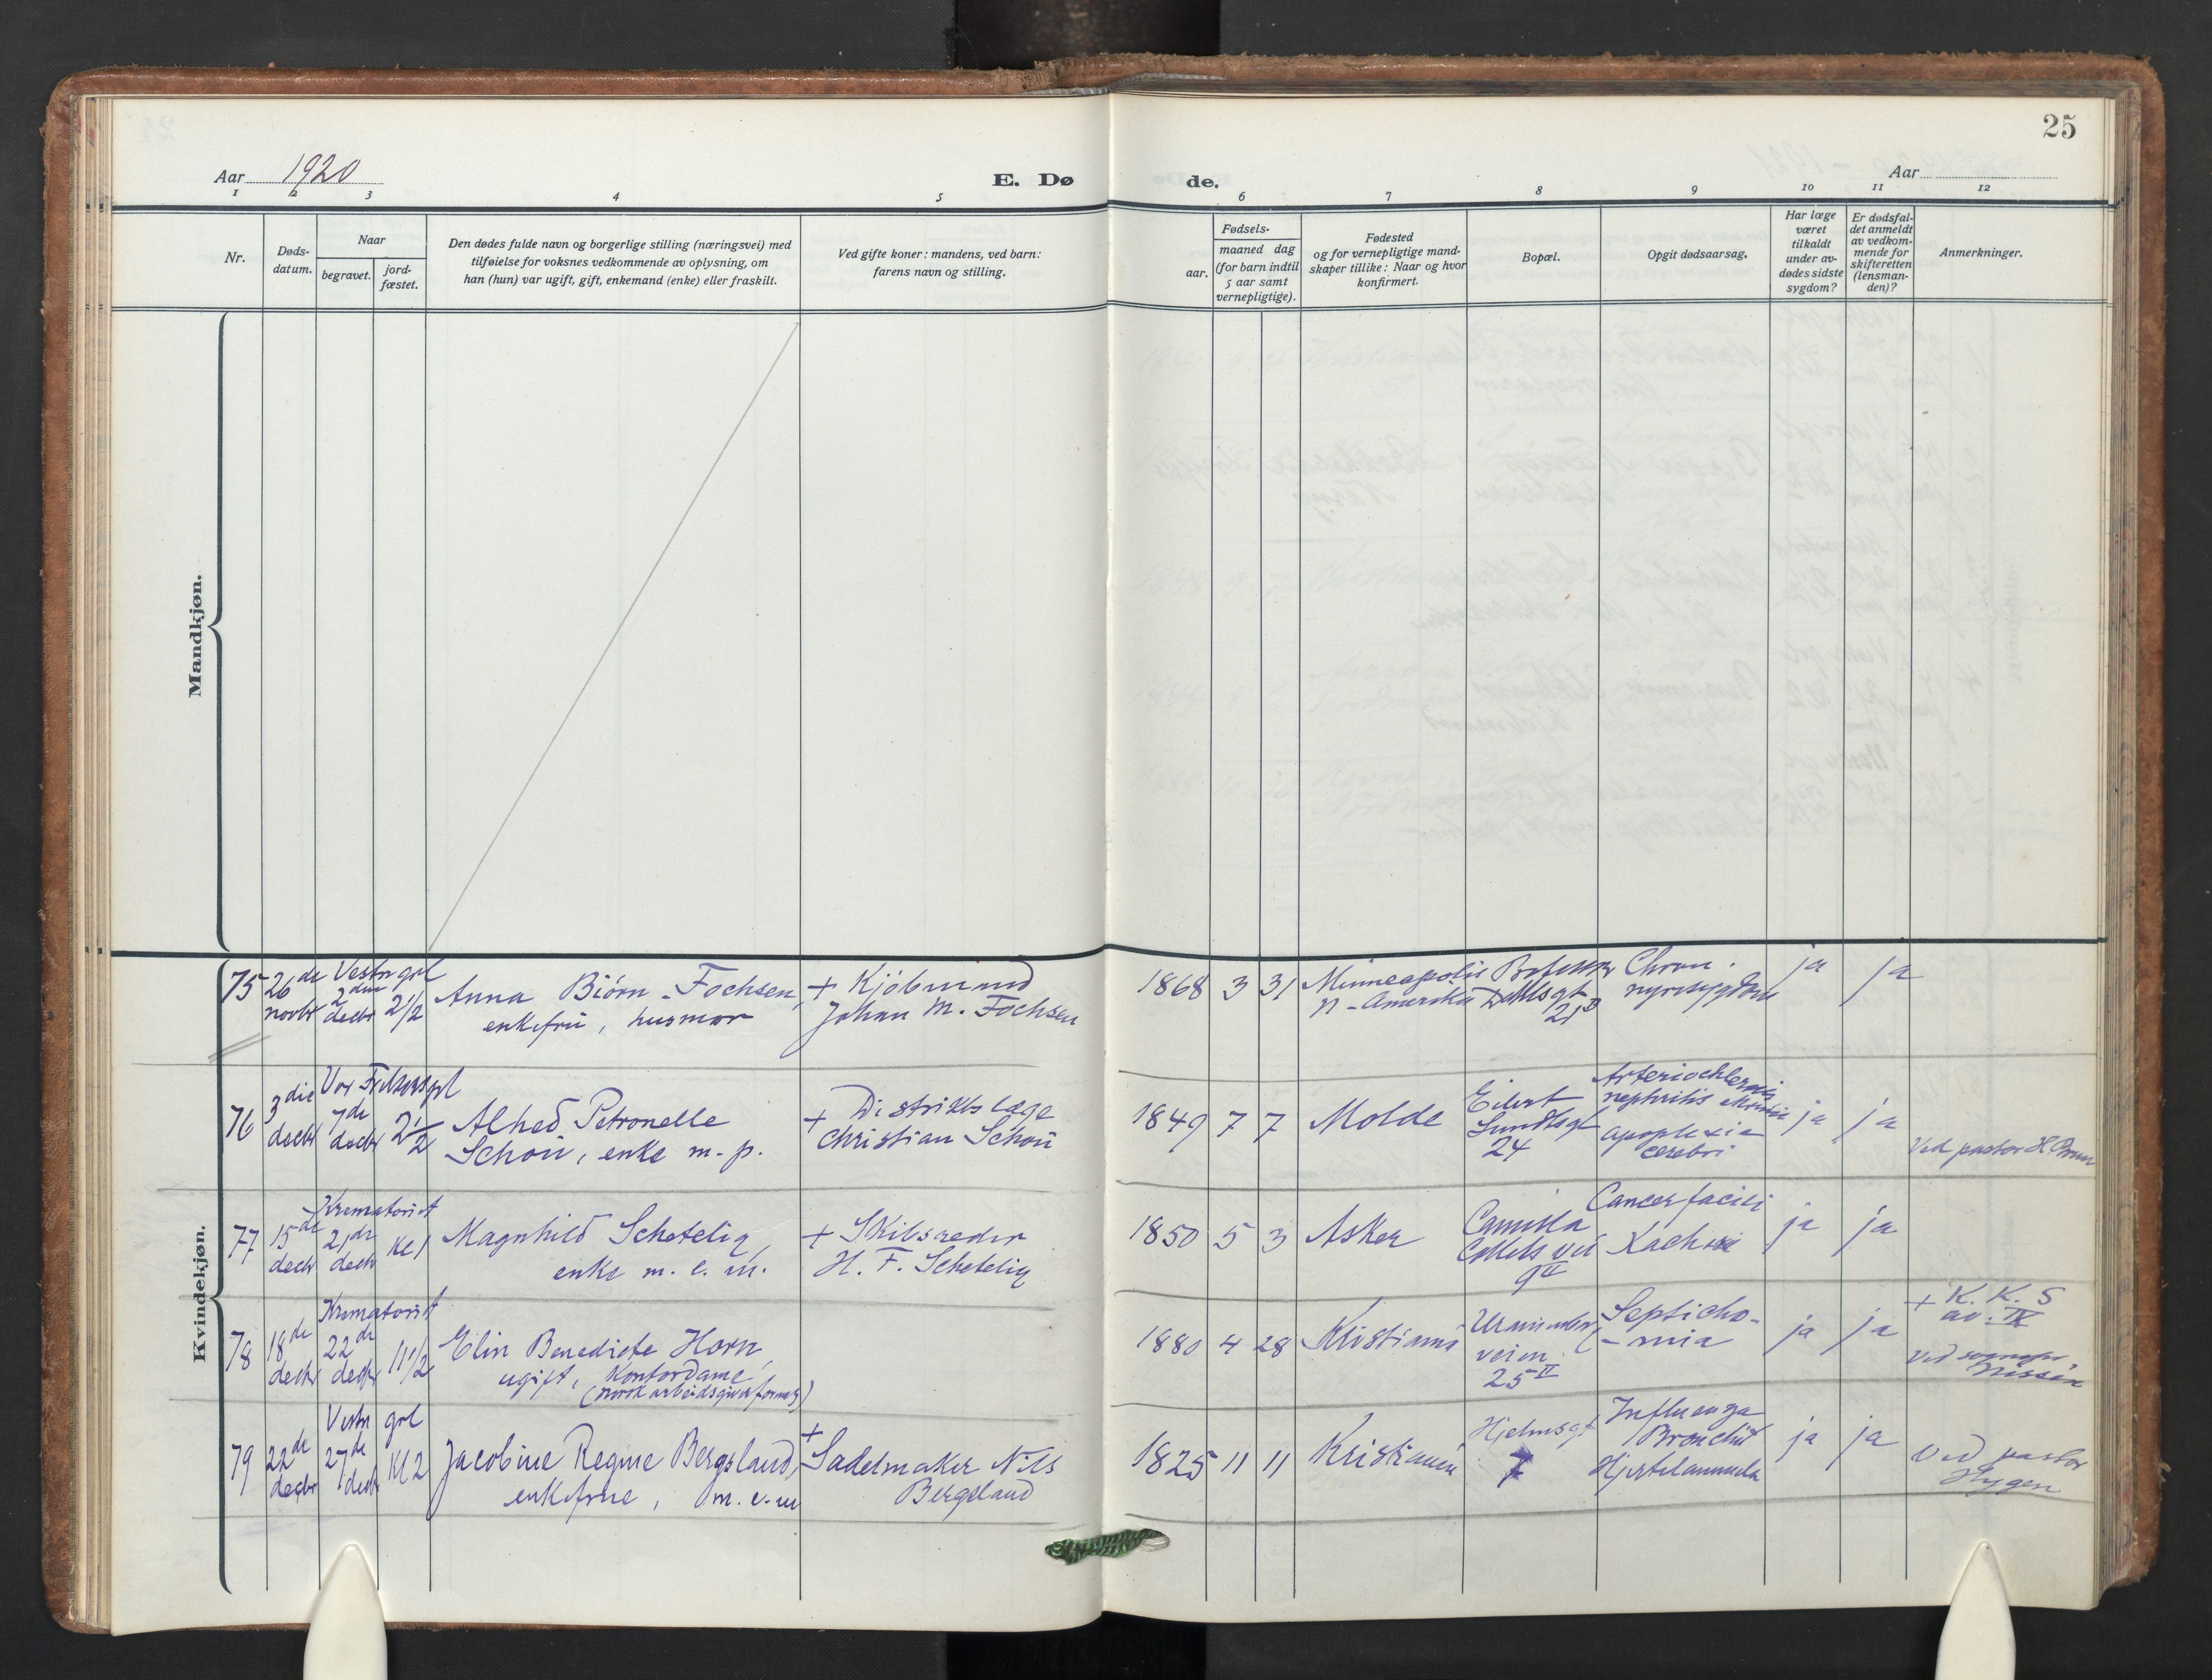 25
Aar 1920
E. Dø
de.
Aar
1 2 3 4 5 6 7 8 9 10 11 12
Nr.
Døds-
datum.
Naar
begravet.
jord-
fæstet.
Den dødes fulde navn og borgerlige stilling (næringsvei) med
tilføielse for voksnes vedkommende av oplysning, om
han (hun) var ugift, gift, enkemand (enke) eller fraskilt.
Ved gifte koner: mandens, ved barn:
farens navn og stilling.
Fødsels-
aar.
maaned dag
(for barn indtil
5 aar samt
vernepligtige).
Fødested
og for vernepligtige mand-
skaper tillike: Naar og hvor
konfirmert.
Bopæl.
Opgit dødsaarsag.
Har læge
været
tilkaldt
under av-
dødes sidste
sygdom?
Er dødsfal-
det anmeldt
av vedkom-
mende for
skifteretten
(lensman-
den)?
Anmerkninger.
Mandkjøn.
Kvindekjøn.
75
26de
novbr
Vestre grl
2den
decbr
2 1/2
Anna Biørn-Fochsen,
enkefru, husmor
+ Kjöbmand
Johan M. Fochsen
1868 3 31
Minneapolis
N-Amerika
Professor
Dahlsgt
21
Chron.
nyresygdom
ja
ja
76
3die
decbr
Vor Frelsers grl
7de
decbr
2 1/2
Alhed Petronelle
Schou, enke m. p.
+ Distriktslæge
Christian Schou
1849 7 7
Molde
Eilert
Sundtsgt
24
nephritis
apoplexia
cerebri
ja
ja
Ved pastor H.
77
15de
decbr
Krematoriet
21de
decbr
Kl 1
Magnhild Schetelig,
enke m. e. m.
+ Skibsreder
H. F. Schetelig
1850 5 3
Asker
Camilla
Colletts vei
9 II
Cancer faciei
ja
ja
78
18de
decbr
Krematoriet
22de
decbr
11 1/2
Elin Benedicte Horn,
ugift, Kontordame
(norsk arbeidsgiverforening)
1880 4 28
Kristiania
Uranienborg
veien
25 II
Septichæ-
-mia
ja
ja
+ K. K. S
av. IX
Ved sognepr.
Nissen
79
22de
decbr
Vestre grl
27de
decbr
Kl 2
Jacobine Regine Bergsland,
enkefrue, m. e. m
+
Sadelmaker Nils
Bergsland
1825 11 11
Kristiania
Hjelmsgt
7
Influenza
Bronchit
Hjertelammelse
ja
ja
Ved pastor
Hygen